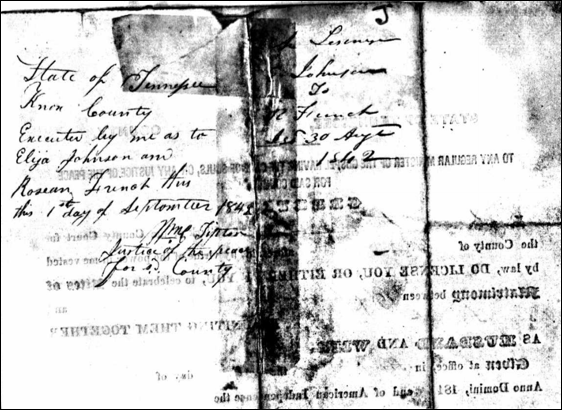 State of Tennessee
Knox County
Executed by me as to
Elija Johnson and
Rosean French this
this 1st day of September 1842
Wm C Tipton
Justice of the peace
for sd. County
J
Licence
Johnson
To
French
30 Augt
1842
TO ANY REGULAR MINISTER OF THE GOSPEL, HAVING THE CARE OF SOULS, OR ANY JUSTICE OF THE PEACE
FOR SAID COUNTY
County Court
the County of
by law, DO LICENSE YOU, OR EITHER OF YOU, to celebrate the Rites of
Matrimony between
UNITING THEM TOGETHER
AS HUSBAND AND WIFE.
Given at office, in
day of
Anno Domini, 184 and of American Independence the